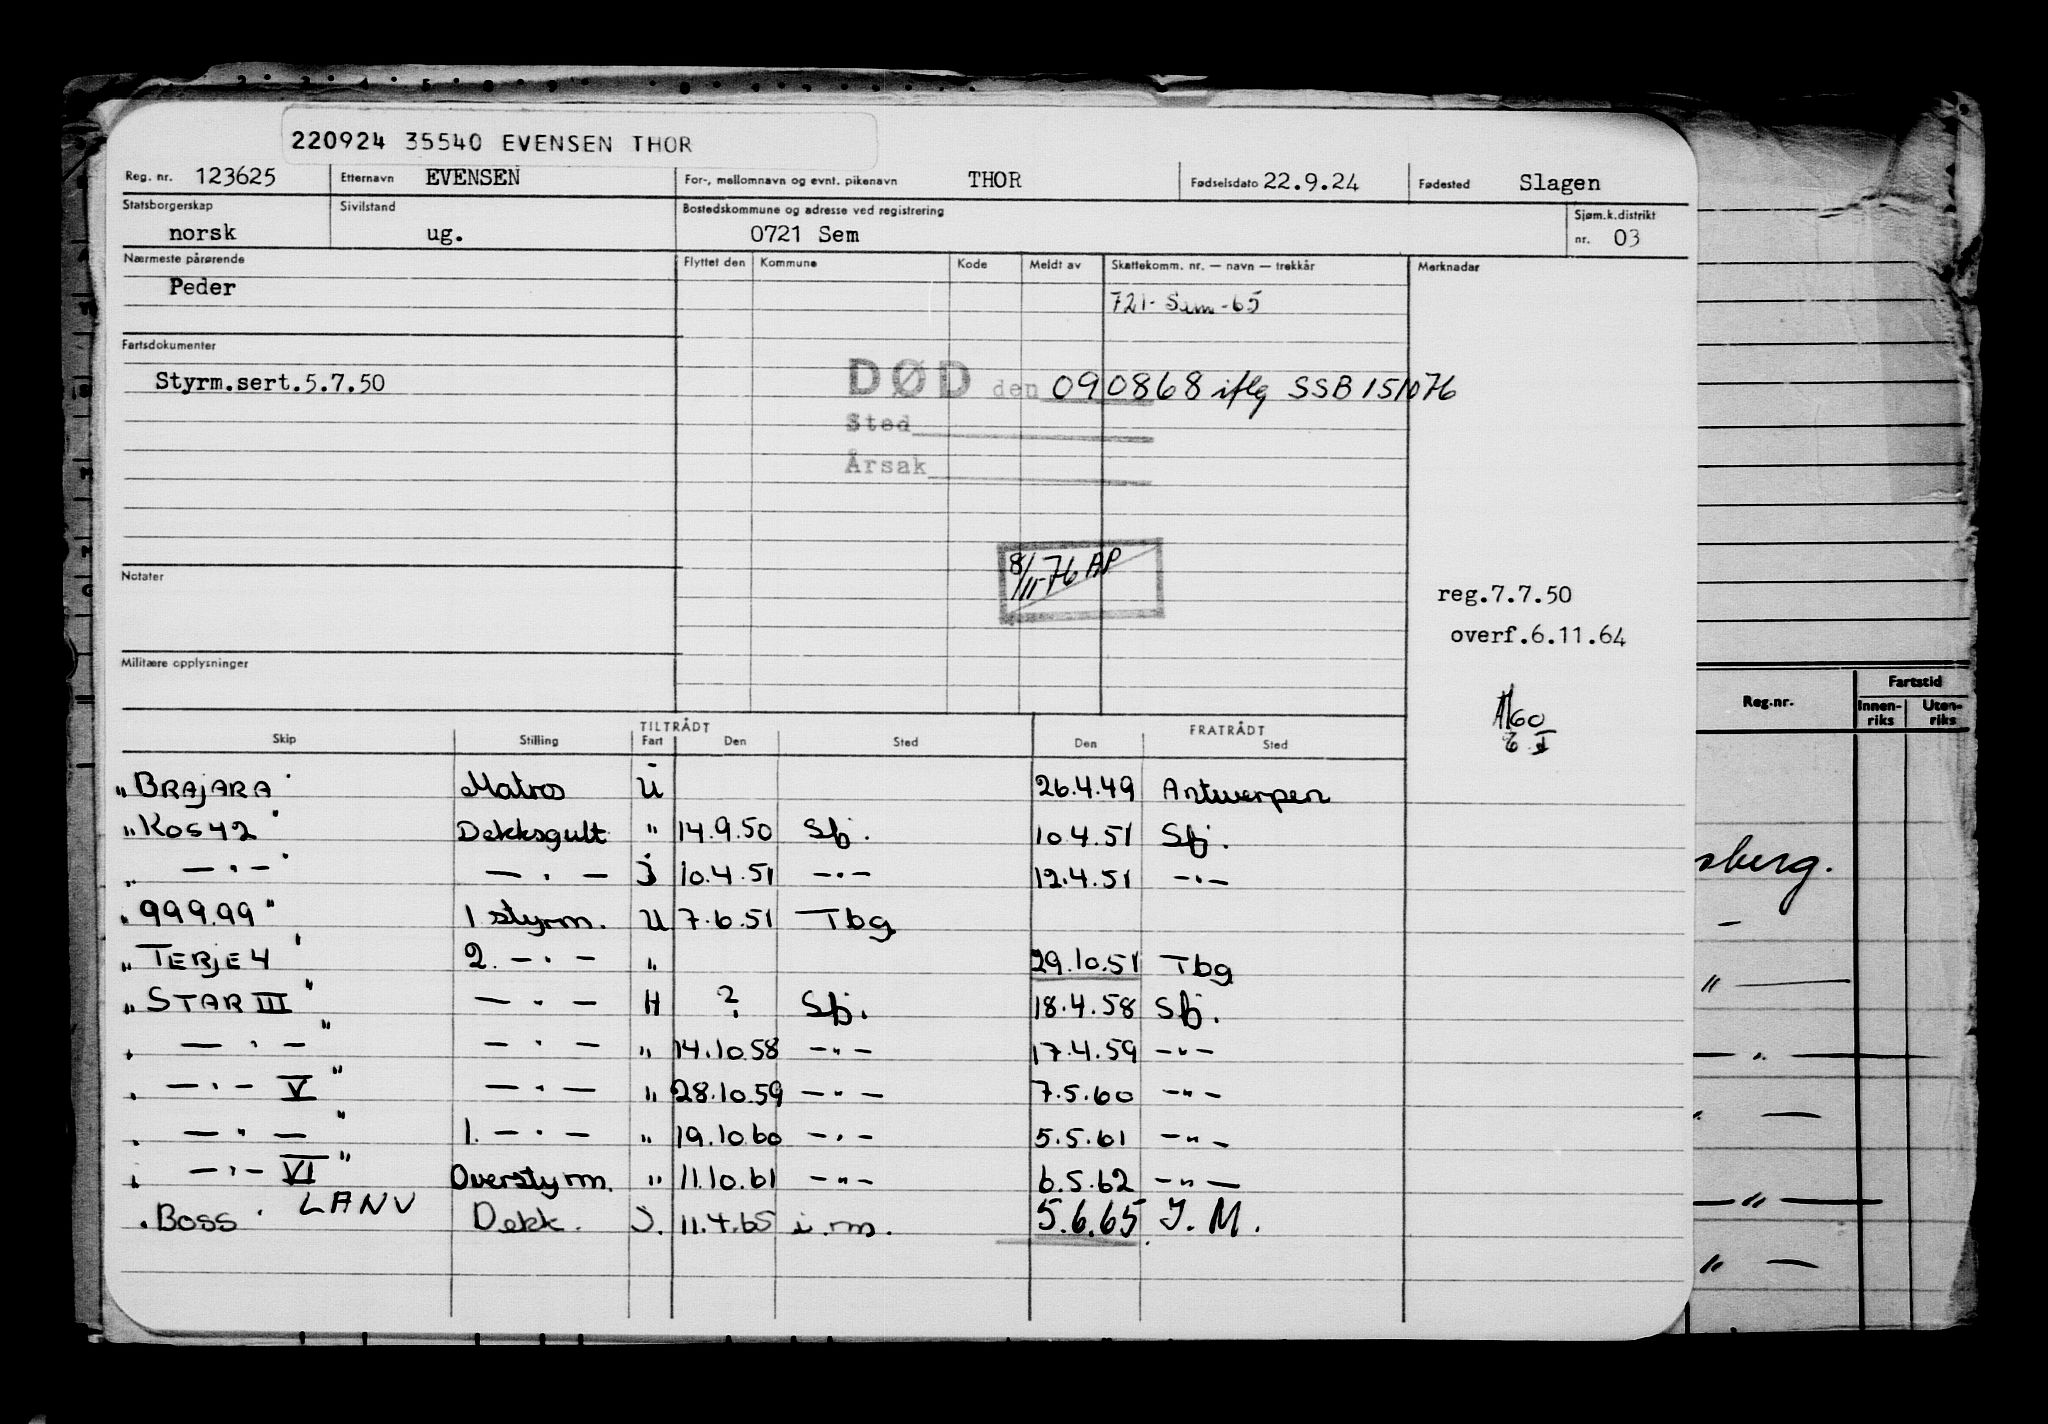 220924 35540 EVENSEN THOR
Reg. nr. 123625 Etternavn EVENSEN For-, mellomnavn og evnt. pikenavn THOR Fødselsdato 22.9.24 Fødested Slagen
Statsborgerskap Sivilstand Bostedskommune og adresse ved registrering Sjøm.k.distrikt
norsk ug. 0721 Sem nr. 03
Nærmeste pårørende Flyttet den Kommune Kode Meldt av Skattekomm. nr. — navn — trekkår Merknader
Peder
721 - Sem - 65
Fartsdokumenter
Styrm.sert.5.7.50
DØD den 090868 iflg SSB 151076
Sted
Årsak
8/11-76 AP
Notater
reg.7.7.50
overf.6.11.64
Militære opplysninger
TILTRÅDT FRATRÅDT
Skip Stilling Fart Den Sted Den Sted
"BRAJARA" Matros U 26.4.49 Antwerpen
"KOS 42" Dekksgutt " 14.9.50 Sfj. 10.4.51 Sfj.
" — " — " — " — J 10.4.51 — " — 12.4.51 — " —
"999.99" 1 styrm. U 7.6.51 Tbg
"TERJE 4" 2. — " — " 29.10.51 Tbg
"STAR III" — " — H ? Sfj. 18.4.58 Sfj.
" — " — " — " — " 14.10.58 — " — 17.4.59 — " —
" — " — V" — " — " 28.10.59 — " — 7.5.60 — " —
" — " — " 1. — " — " 19.10.60 — " — 5.5.61 — " —
" — " — VI" Overstyrm. " 11.10.61 — " — 6.5.62 — " —
"BOSS" LANV Dekk. J. 11.4.65 i.m. 5.6.65 I. M.
Reg.nr. Fartstid
Innen-riks Uten-riks
sberg.